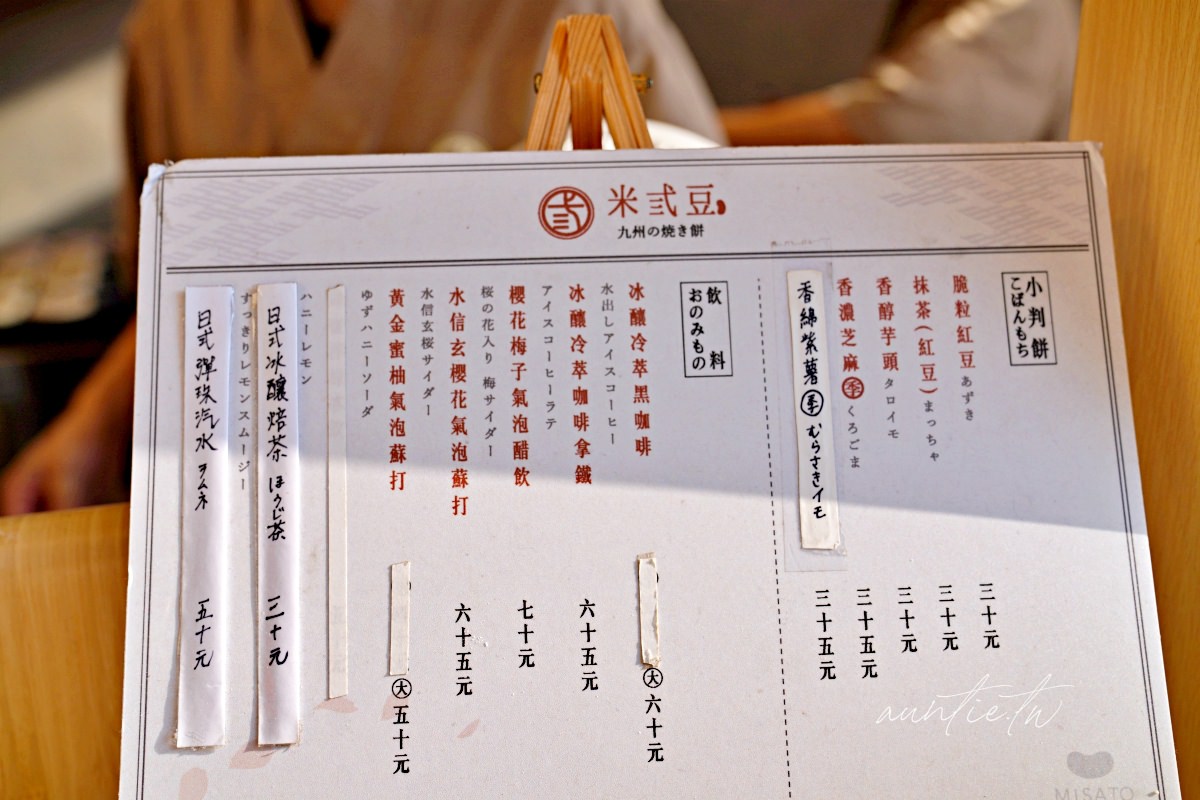 米弎豆
九州の焼き餅
小判餅
こばんもち
脆粒紅豆 あずき 三十元
抹茶(紅豆) まっちゃ 三十元
香醇芋頭 タロイモ 三十元
香濃芝麻 季 くろごま 三十五元
香綿紫薯 季 むらさきイモ 三十五元
飲料
おのみもの
冰釀冷萃黑咖啡 大 六十元
水出しアイスコーヒー
冰釀冷萃咖啡拿鐵 六十五元
アイスコーヒーラテ
櫻花梅子氣泡醋飲 七十元
桜の花入り 梅サイダー
水信玄櫻花氣泡蘇打 六十五元
水信玄桜サイダー
黃金蜜柚氣泡蘇打 大 五十元
ゆずハニーソーダ
ハニーレモン
日式冰釀焙茶 ほうじ茶 三十元
すっきりレモンスムージー
日式彈珠汽水 ラムネ 五十元
auntie.tw
MISATO